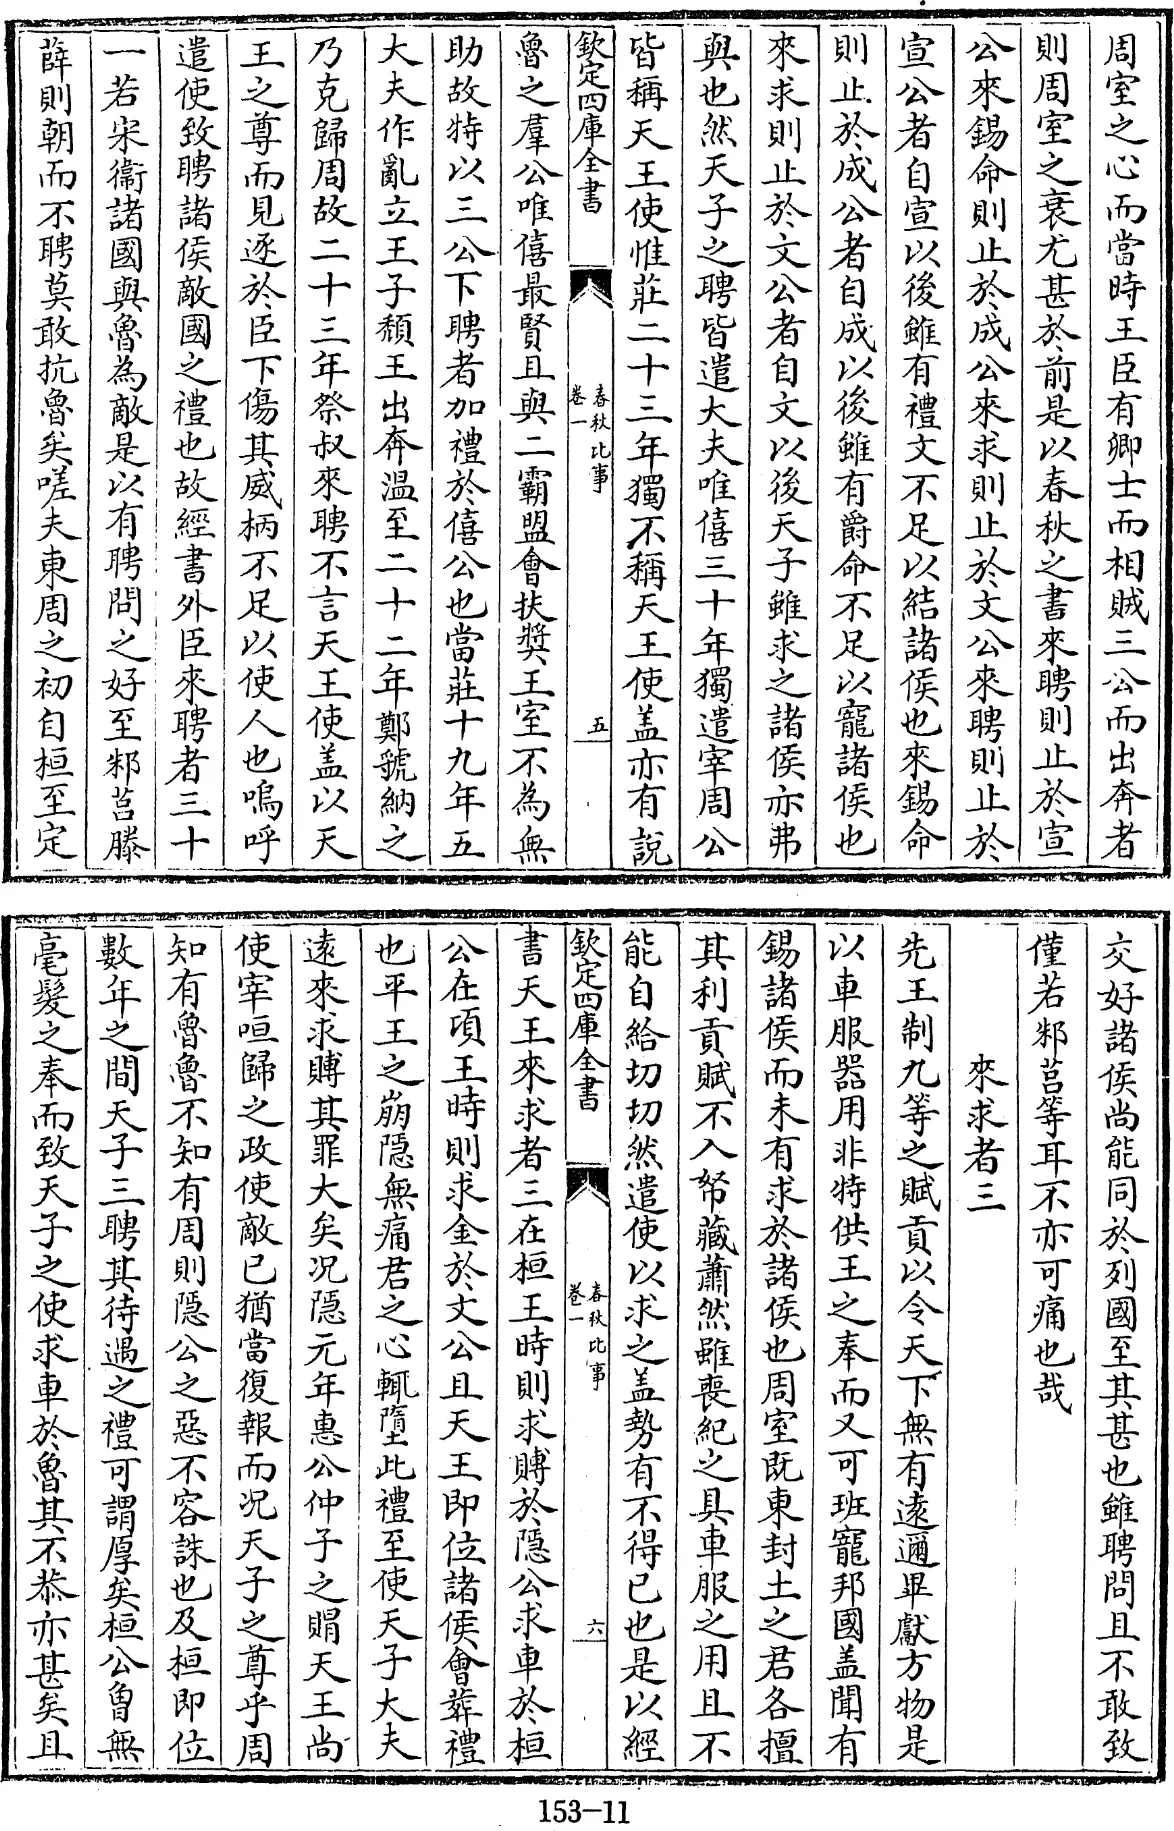 周室之心而當時王臣有卿士而相賊三公而出奔者
則周室之衰尤甚於前是以春秋之書來聘則止於宣
公來錫命則止於成公來求則止於文公來聘則止於
宣公者自宣以後雖有禮文不足以結諸侯也來錫命
則止於成公者自成以後雖有爵命不足以寵諸侯也
來求則止於文公者自文以後天子雖求之諸侯亦弗
與也然天子之聘皆遣大夫唯僖三十年獨遣宰周公
皆稱天王使惟莊二十三年獨不稱天王使盖亦有說
欽定四庫全書
春秋比事
卷一
五
魯之羣公唯僖最賢且與二霸盟會扶奬王室不為無
助故特以三公下聘者加禮於僖公也當莊十九年五
大夫作亂立王子頽王出奔温至二十二年鄭虢納之
乃克歸周故二十三年祭叔來聘不言天王使盖以天
王之尊而見逐於臣下傷其威柄不足以使人也嗚呼
遣使致聘諸侯敵國之禮也故經書外臣來聘者三十
一若宋衛諸國與魯為敵是以有聘問之好至邾莒滕
薛則朝而不聘莫敢抗魯矣嗟夫東周之初自桓至定
交好諸侯尚能同於列國至其甚也雖聘問且不敢致
僅若邾莒等耳不亦可痛也哉
來求者三
先王制九等之賦貢以令天下無有遠邇畢獻方物是
以車服器用非特供王之奉而又可班寵邦國盖聞有
錫諸侯而未有求於諸侯也周室既東封土之君各擅
其利貢賦不入帑藏蕭然雖喪紀之具車服之用且不
能自給切切然遣使以求之盖勢有不得已也是以經
欽定四庫全書
春秋比事
卷一
六
書天王來求者三在桓王時則求賻於隱公求車於桓
公在頃王時則求金於文公且天王即位諸侯會葬禮
也平王之崩隱無痛君之心輒墮此禮至使天子大夫
遠來求賻其罪大矣况隱元年惠公仲子之賵天王尚
使宰咺歸之政使敵已猶當復報而况天子之尊乎周
知有魯魯不知有周則隱公之惡不容誅也及桓即位
數年之間天子三聘其待遇之禮可謂厚矣桓公曾無
毫髮之奉而致天子之使求車於魯其不恭亦甚矣且
153-11